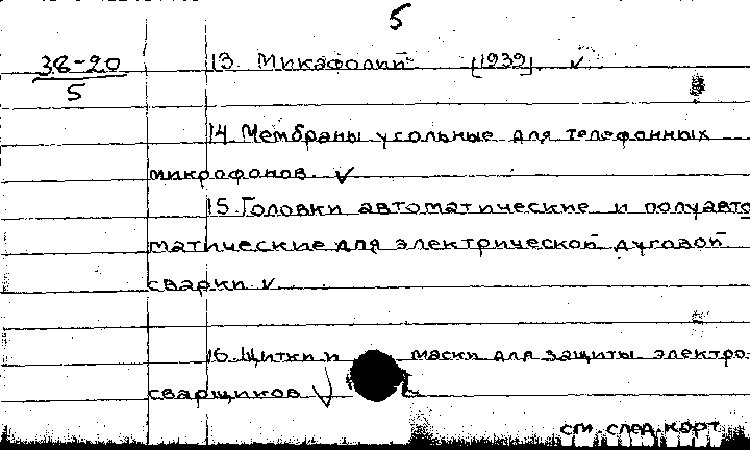 5
38-20 13. Микафолий [1939] ✓
5
14. Мембраны угольные для телефонных
микрофонов. ✓
15. Головки автоматические и полуавто
матические для электрической дуговой
сварки ✓
16. Щитки и маски для защиты электро-
сварщиков ✓
см. след. карт